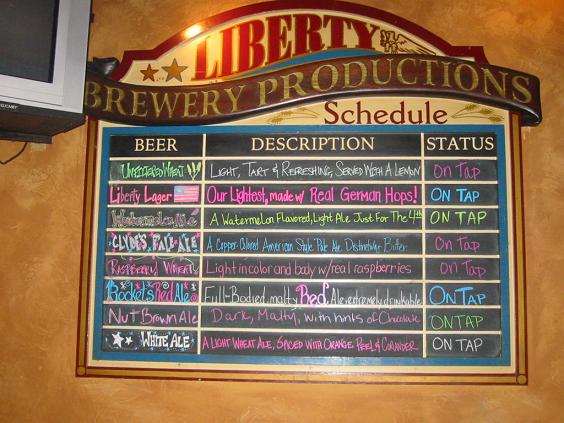 LIBERTY
BREWERY PRODUCTIONS
Schedule
BEER DESCRIPTION STATUS
UNFILTERED WHEAT LIGHT, TART & REFRESHING, SERVED WITH A LEMON ON TAP
Liberty Lager Our Lightest, made w/ Real German Hops! ON TAP
Watermelon Ale A Watermelon Flavored, Light Ale Just For The 4th ON TAP
CLYDES PALE ALE A Copper Colored American Style Pale Ale Distinctively Bitter ON TAP
RASPBERRY WHEAT Light in color and body w/ real raspberries ON TAP
Rockets Red Ale Full-Bodied, malty Red Ale, extremely drinkable ON TAP
Nut Brown Ale Dark, Malty, with hints of Chocolate ON TAP
WHITE ALE A LIGHT WHEAT ALE, SPICED WITH ORANGE PEEL & CORIANDER ON TAP